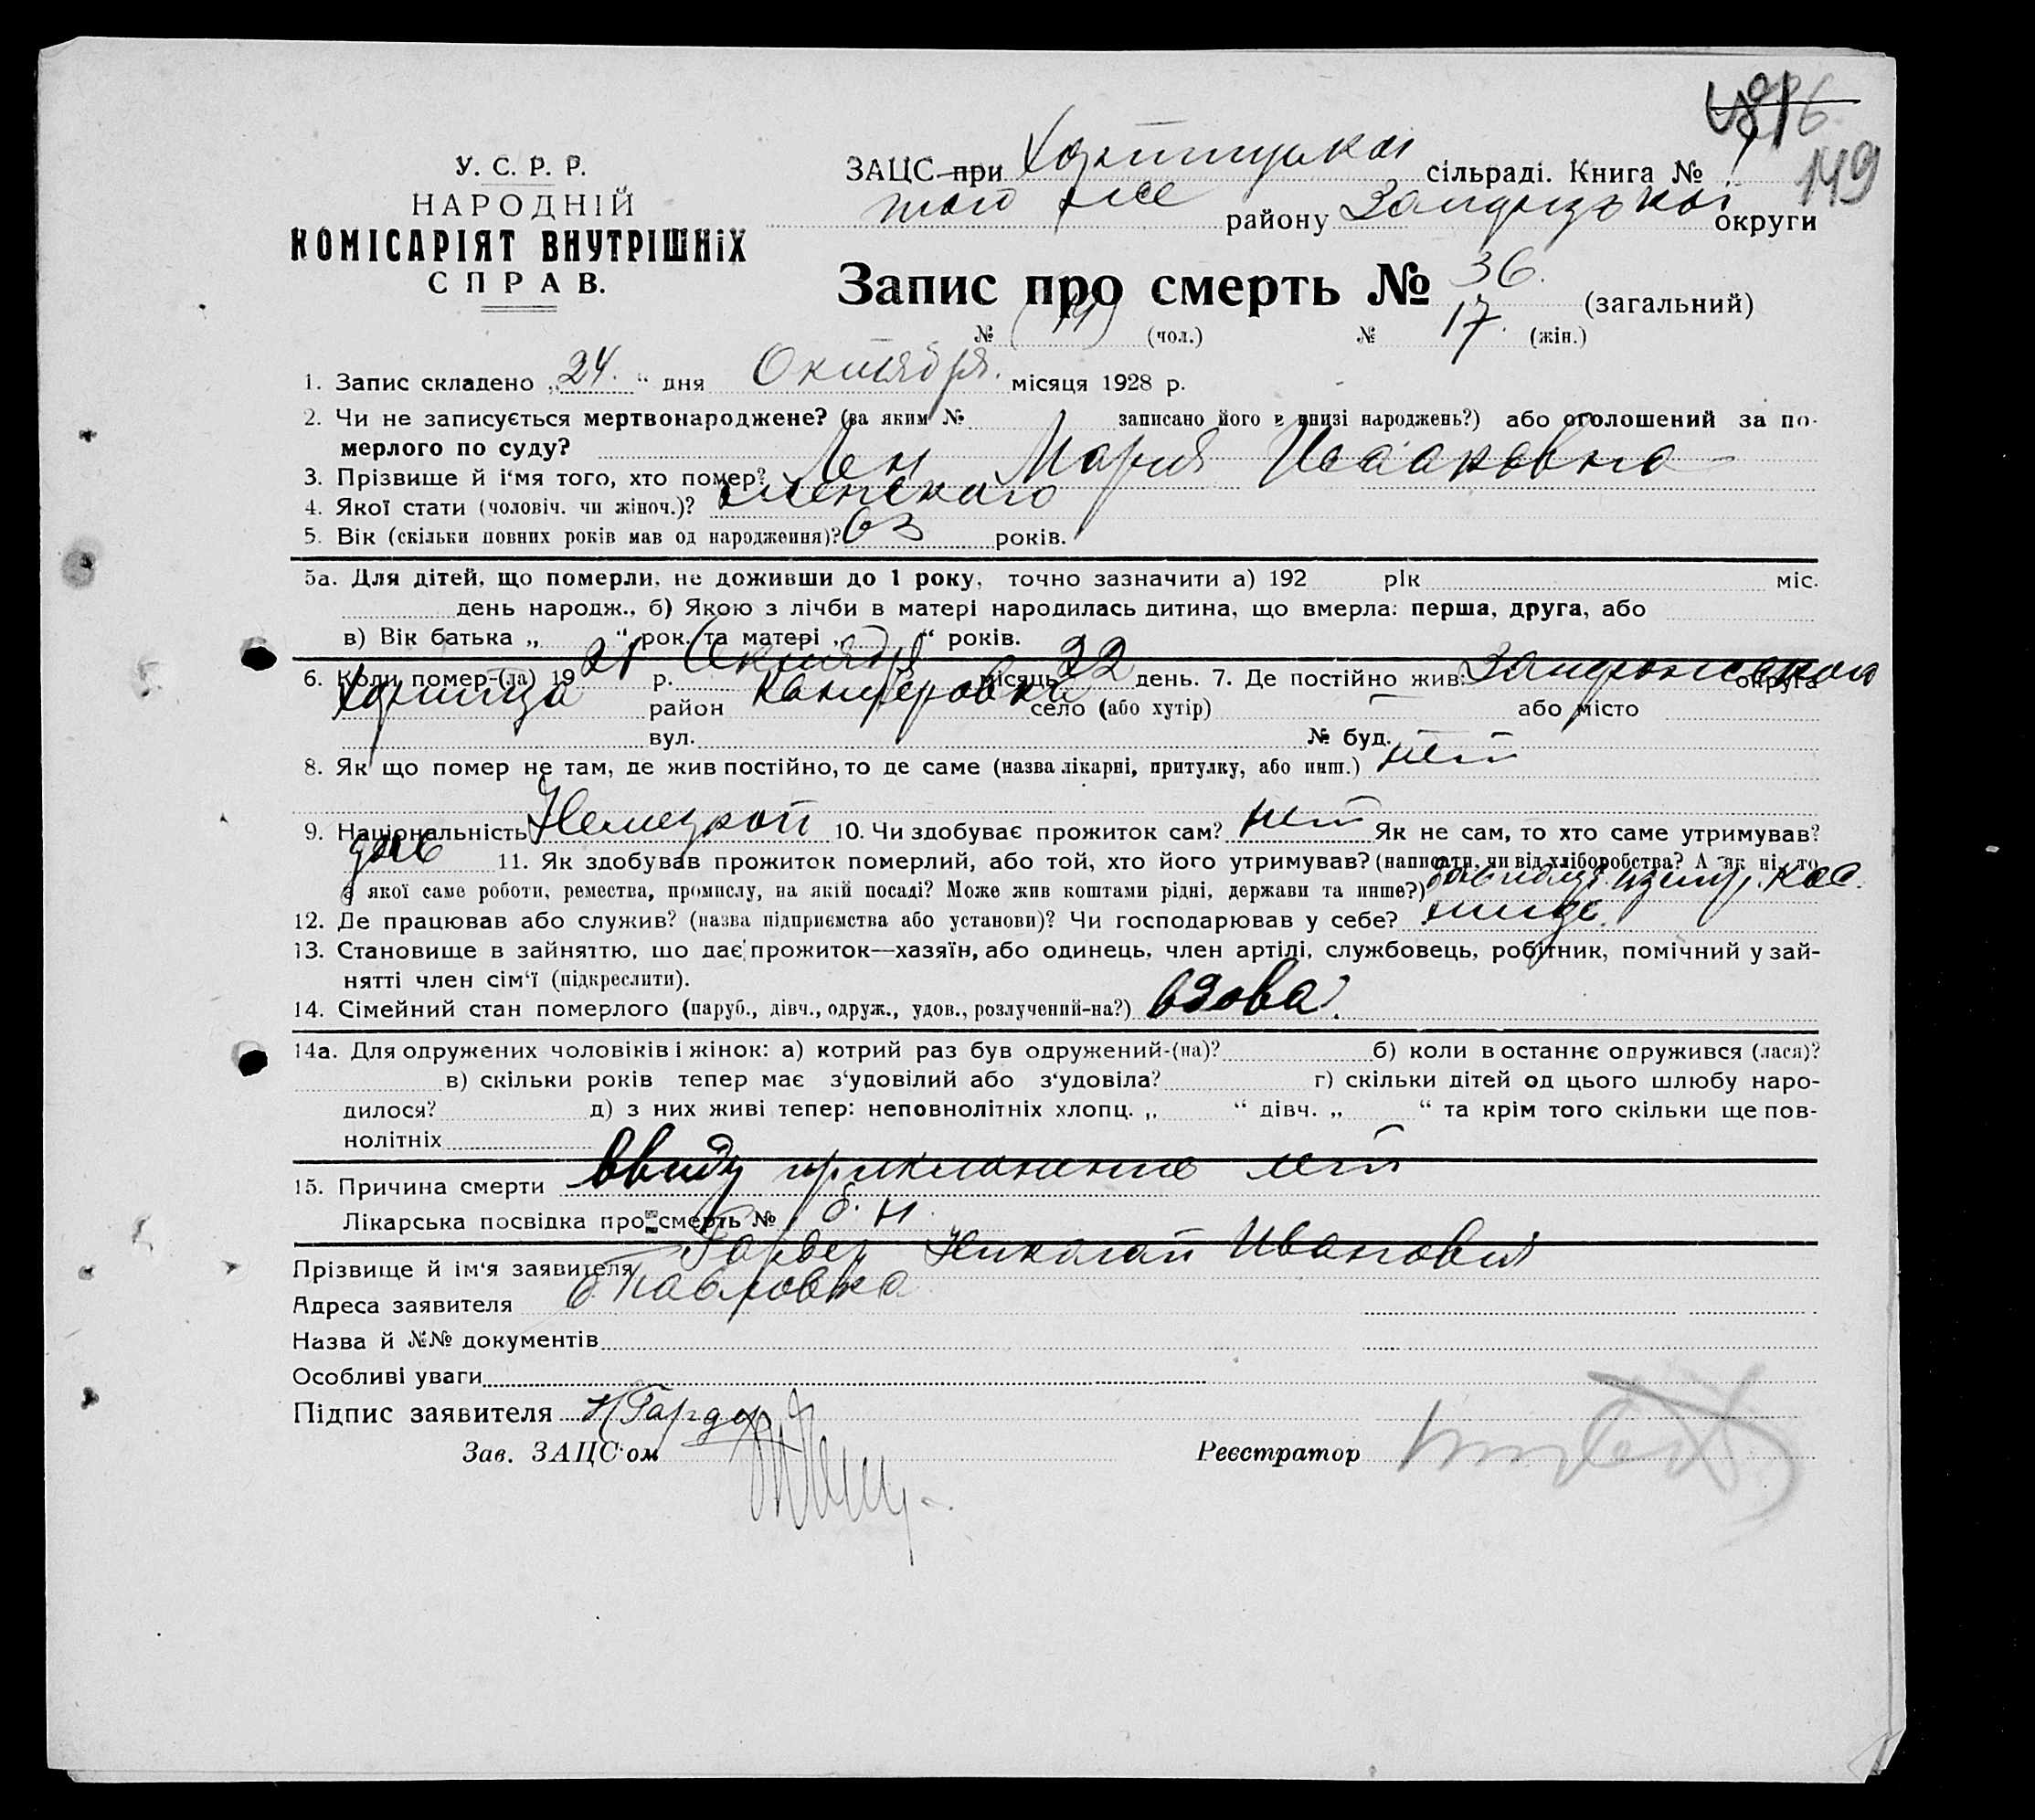 У. С. Р. Р.
НАРОДНІЙ
КОМІСАРІЯТ ВНУТРІШНіХ
СПРАВ.
149
ЗАЦС при Хортицькоі сільраді. Книга №
того же району Запоризькоі округи
Запис про смерть № 36. (загальний)
№ (19) (чол.) № 17. (жін.)
1. Запис складено „24.“ дня Октября. місяця 1928 р.
2. Чи не записується мертвонароджене? (за яким № записано його в книзі народжень?) або оголошений за по-
мерлого по суду?
3. Прізвище й і‘мя того, хто помер? Лен Мария Исааковна
4. Якої стати (чоловіч. чи жіноч.)? женскаго
5. Вік (скільки повних років мав од народження)? 63 років.
5а. Для дітей, що померли, не доживши до 1 року, точно зазначити а) 192 рік міс.
день народж., б) Якою з лічби в матері народилась дитина, що вмерла: перша, друга, або
в) Вік батька „ “ рок. та матері „ “ років.
6. Коли помер-(ла) 19 р. Октября місяць 22 день. 7. Де постійно жив: округа
Хортица район Канцеровка село (або хутір) — або місто
вул. № буд. —
8. Як що помер не там, де жив постійно, то де саме (назва лікарні, притулку, або инш.) нет
9. Національність Немецкой 10. Чи здобуває прожиток сам? нет Як не сам, то хто саме утримував?
11. Як здобував прожиток померлий, або той, хто його утримував? (написати, чи від хліборобства? А як ні, то
з якої саме роботи, ремества, промислу, на якій посаді? Може жив коштами рідні, держави та инше?)
12. Де працював або служив? (назва підприємства або установи)? Чи господарював у себе?
13. Становище в зайняттю, що дає прожиток—хазяїн, або одинець, член артілі, службовець, робітник, помічний у зай-
нятті член сім‘ї (підкреслити).
14. Сімейний стан померлого (паруб., дівч., одруж., удов., розлучений-на?) вдова.
14а. Для одружених чоловіків і жінок: а) котрий раз був одружений-(на)? б) коли в останнє одружився (лася)?
в) скільки років тепер має з‘удовілий або з‘удовіла? г) скільки дітей од цього шлюбу наро-
дилося? д) з них живі тепер: неповнолітніх хлопц. „ “ дівч. „ “ та крім того скільки ще пов-
нолітніх
15. Причина смерти ввиду приклонение лет
Лікарська посвідка про смерть № б. н.
Прізвище й ім‘я заявителя Гардер Николай Иванович
Адреса заявителя с. Павловка
Назва й №№ документів
Особливі уваги
Підпис заявителя Н Гардер
Зав. ЗАЦС‘ом Реєстратор